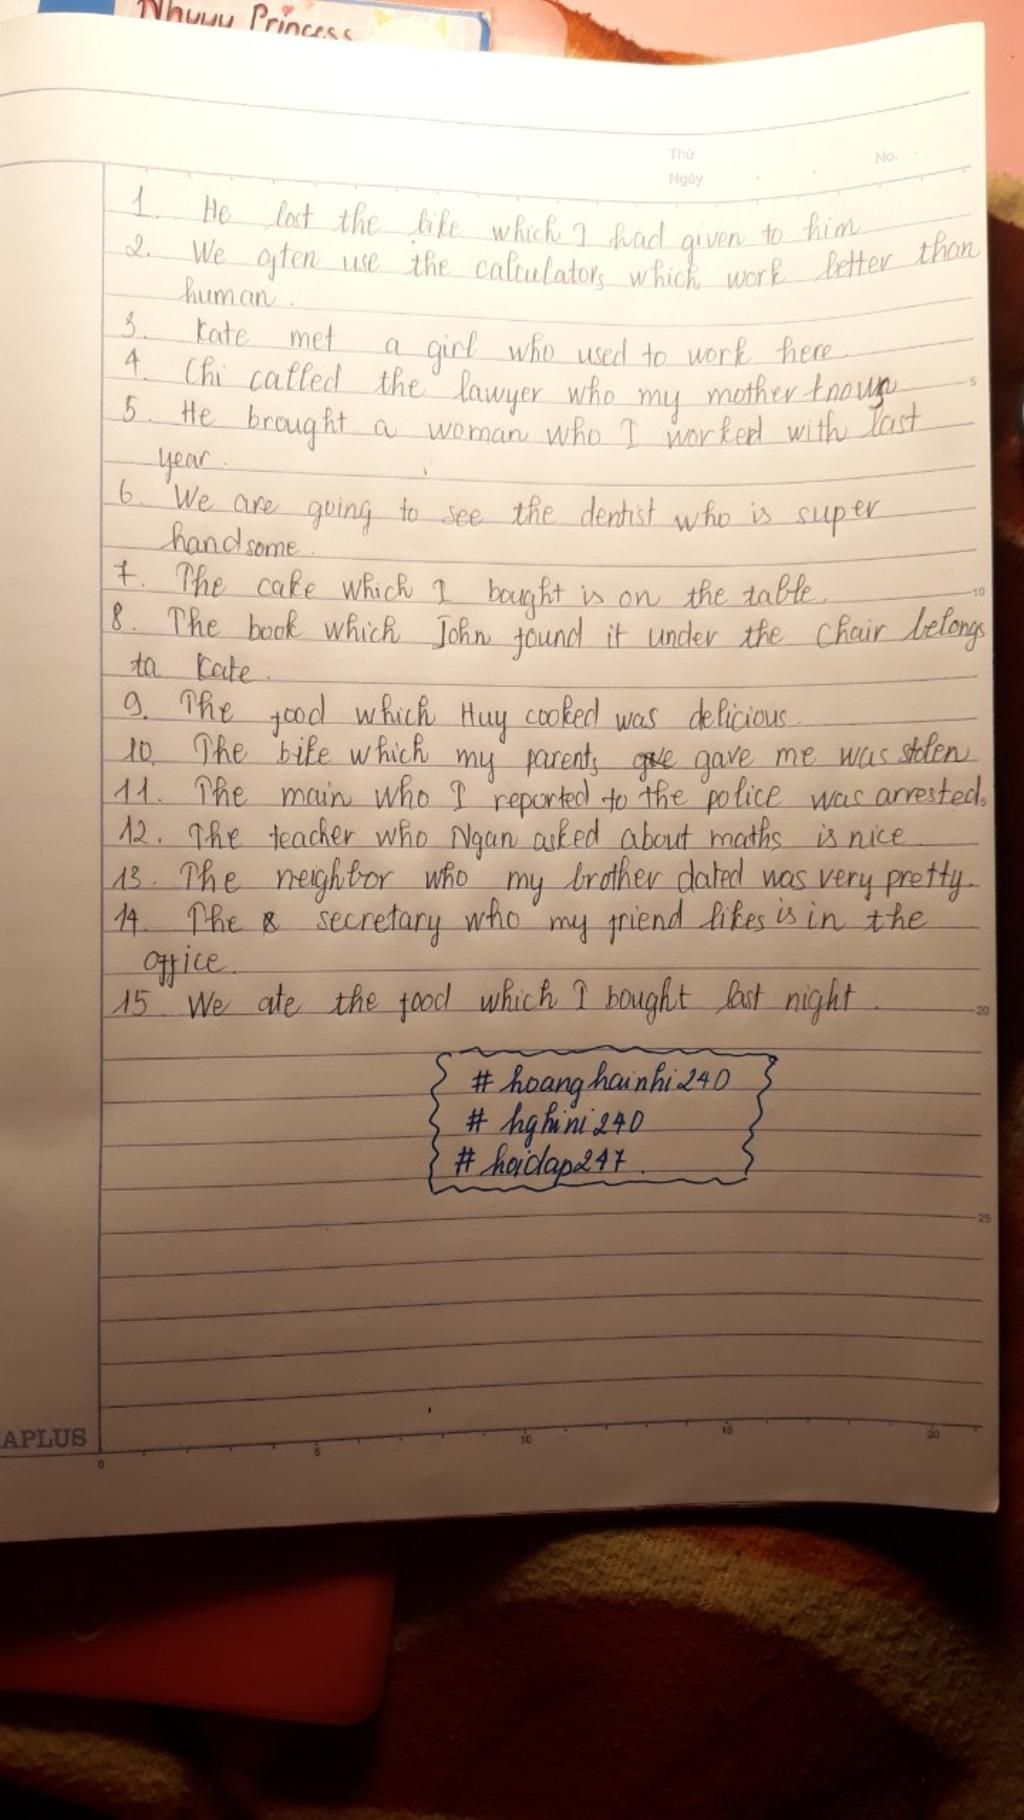 Nhuyu Princess
Thứ
No.
Ngày
1. He lost the bike which I had given to him
2. We often use the calculators which work better than
human.
3. Kate met a girl who used to work here
4. Chi called the lawyer who my mother knows
5. He brought a woman who I worked with last
year.
6. We are going to see the dentist who is super
handsome.
7. The cake which I bought is on the table.
8. The book which John found it under the chair belongs
to Kate.
9. The food which Huy cooked was delicious.
10. The bike which my parents gave me was stolen
11. The main who I reported to the police was arrested.
12. The teacher who Ngan asked about maths is nice
13. The neighbor who my brother dated was very pretty.
14. The secretary who my friend likes is in the
office.
15. We ate the food which I bought last night.
# hoanghainhi240
# hghini240
# hoidap247.
5
10
20
25
APLUS
0 5 10 15 20